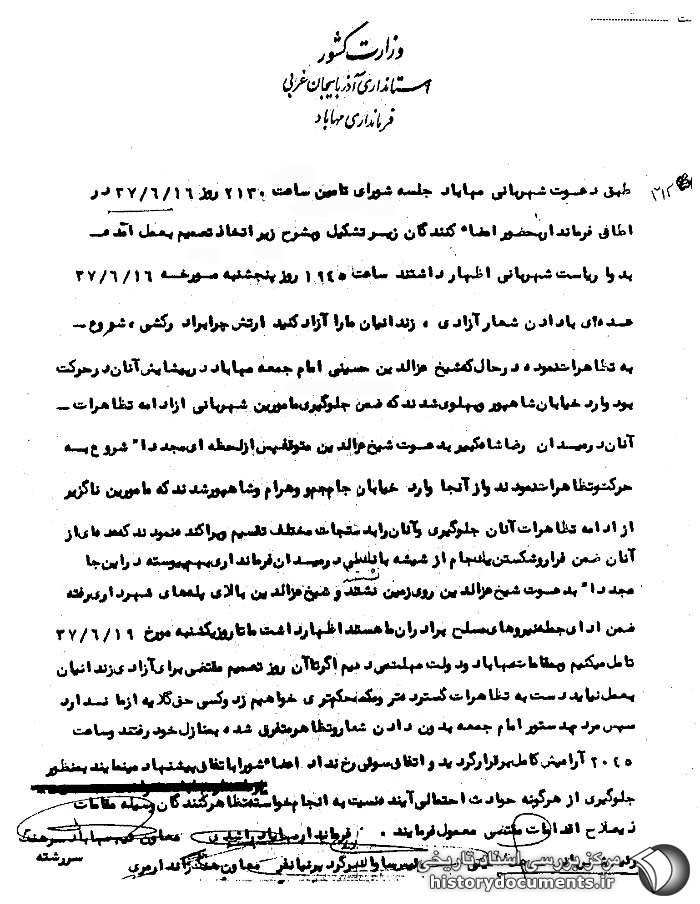 وزارت کشور
استانداری آذربایجان غربی
فرمانداری مهاباد
طبق دعوت شهربانی مهاباد جلسه شورای تامین ساعت ۲۱۳۰ روز ۳۷/۶/۱۶ در
اطاق فرماندار بحضور اعضاء کنندگان زیر تشکیل و بشرح زیر اتخاذ تصمیم بعمل آمد
بدوا ریاست شهربانی اظهار داشتند ساعت ۱۹۴۵ روز پنجشنبه مورخه ۳۷/۶/۱۶
عده‌ای با دادن شعار آزادی ، زندانیان ما را آزاد کنید ارتش چرا برادر کشی ، شروع -
به تظاهرات نموده در حال که شیخ عزالدین حسینی امام جمعه مهاباد در پیشاپیش آنان در حرکت
بود وارد خیابان شاهپور و پهلوی شدند که ضمن جلوگیری مامورین شهربانی از ادامه تظاهرات -
آنان در میدان رضا شاه کبیر بدعوت شیخ عزالدین متوقف پس از لحظه ای مجددا" شروع به
حرکت و تظاهرات نمودند و از آنجا وارد خیابان جام جم و وهرام و شاهپور شدند که مامورین ناگزیر
از ادامه تظاهرات آنان جلوگیری و آنان را بدستجات مختلف تقسیم و پراکنده نمودند که عده‌ای از
آنان ضمن فرار و شکستن شیشه در میدان فرمانداری بهم پیوسته در این جا
مجددا" بدعوت شیخ عزالدین روی زمین نشستند و شیخ عزالدین بالای پله‌های شهرداری رفته
ضمن ادای جمله نیروهای مسلح برادران ما هستند اظهار داشت ما تا روز یکشنبه مورخ ۳۷/۶/۱۹
تامل میکنیم و بمقامات مهاباد و دولت مهلت میدهیم اگر تا آن روز تصمیم مقتضی برای آزادی زندانیان
بعمل نیاید دست به تظاهرات گسترده‌تر و محکم‌تری خواهیم زد و کسی حق گلایه از ما ندارد
سپس مردم بدستور امام جمعه بدون دادن شعار و تظاهر متفرق شده بمنازل خود رفتند و ساعت
۲۰۴۵ آرامش کامل برقرار گردید و اتفاق سوئی رخ نداد اعضاء شورا باتفاق پیشنهاد مینمایند بمنظور
جلوگیری از هرگونه حوادث احتمالی آینده نسبت به انجام خواسته تظاهر کنندگان وسیله مقامات
ذیصلاح اقدامات مقتضی معمول فرمایند . فرماندار مهاباد معاون مهاباد سرهنگ
سررشته
معاون هنگ ژاندارمری
مرکز بررسی اسناد تاریخی
historydocuments.ir